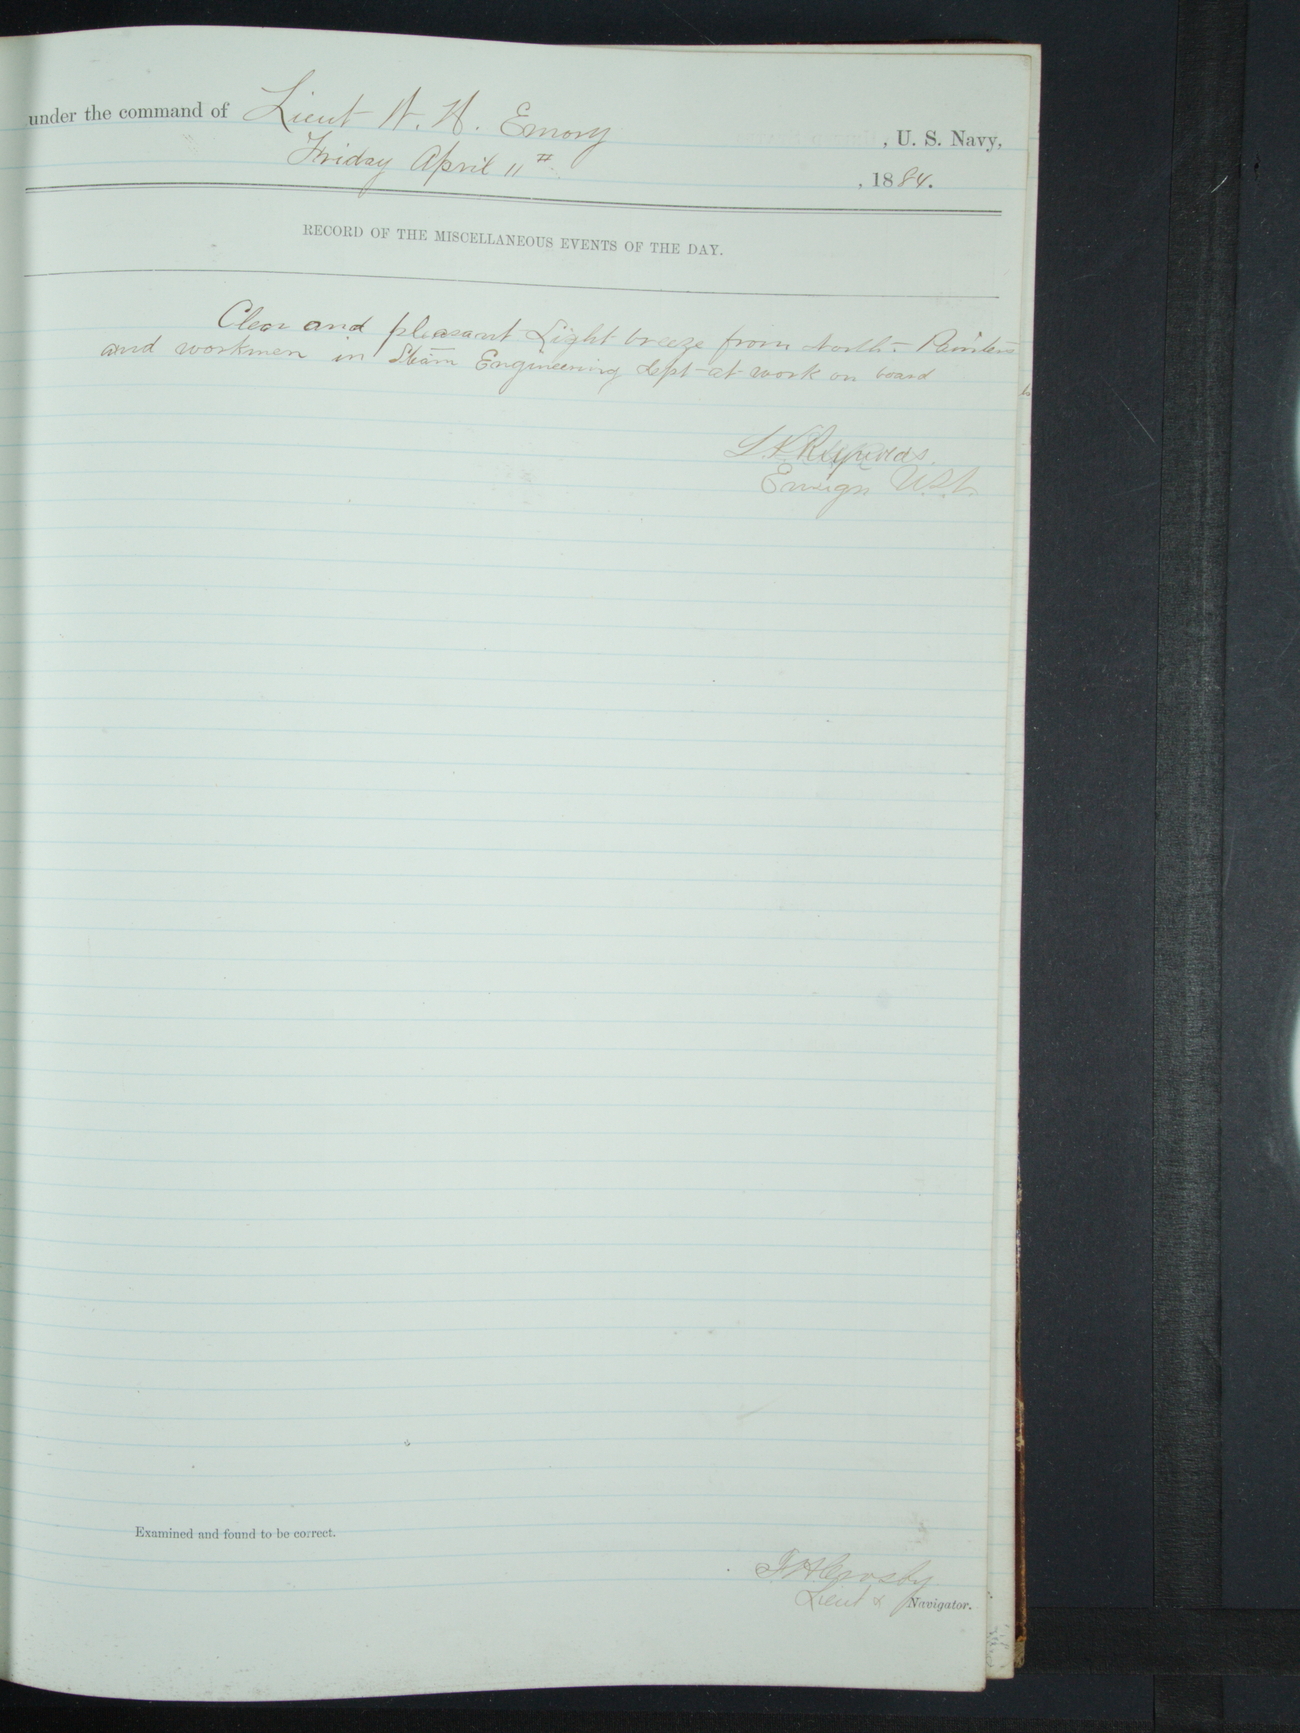 under the command of Lieut W. H. Emory , U. S. Navy,
Friday April 11th , 1884.
RECORD OF THE MISCELLANEOUS EVENTS OF THE DAY.
Clear and pleasant Light breeze from North - Painters
and workmen in Steam Engineering Dept at work on board
L. K. Reynolds.
Ensign U.S.N.
Examined and found to be correct.
F. H. Crosby
Lieut & Navigator.